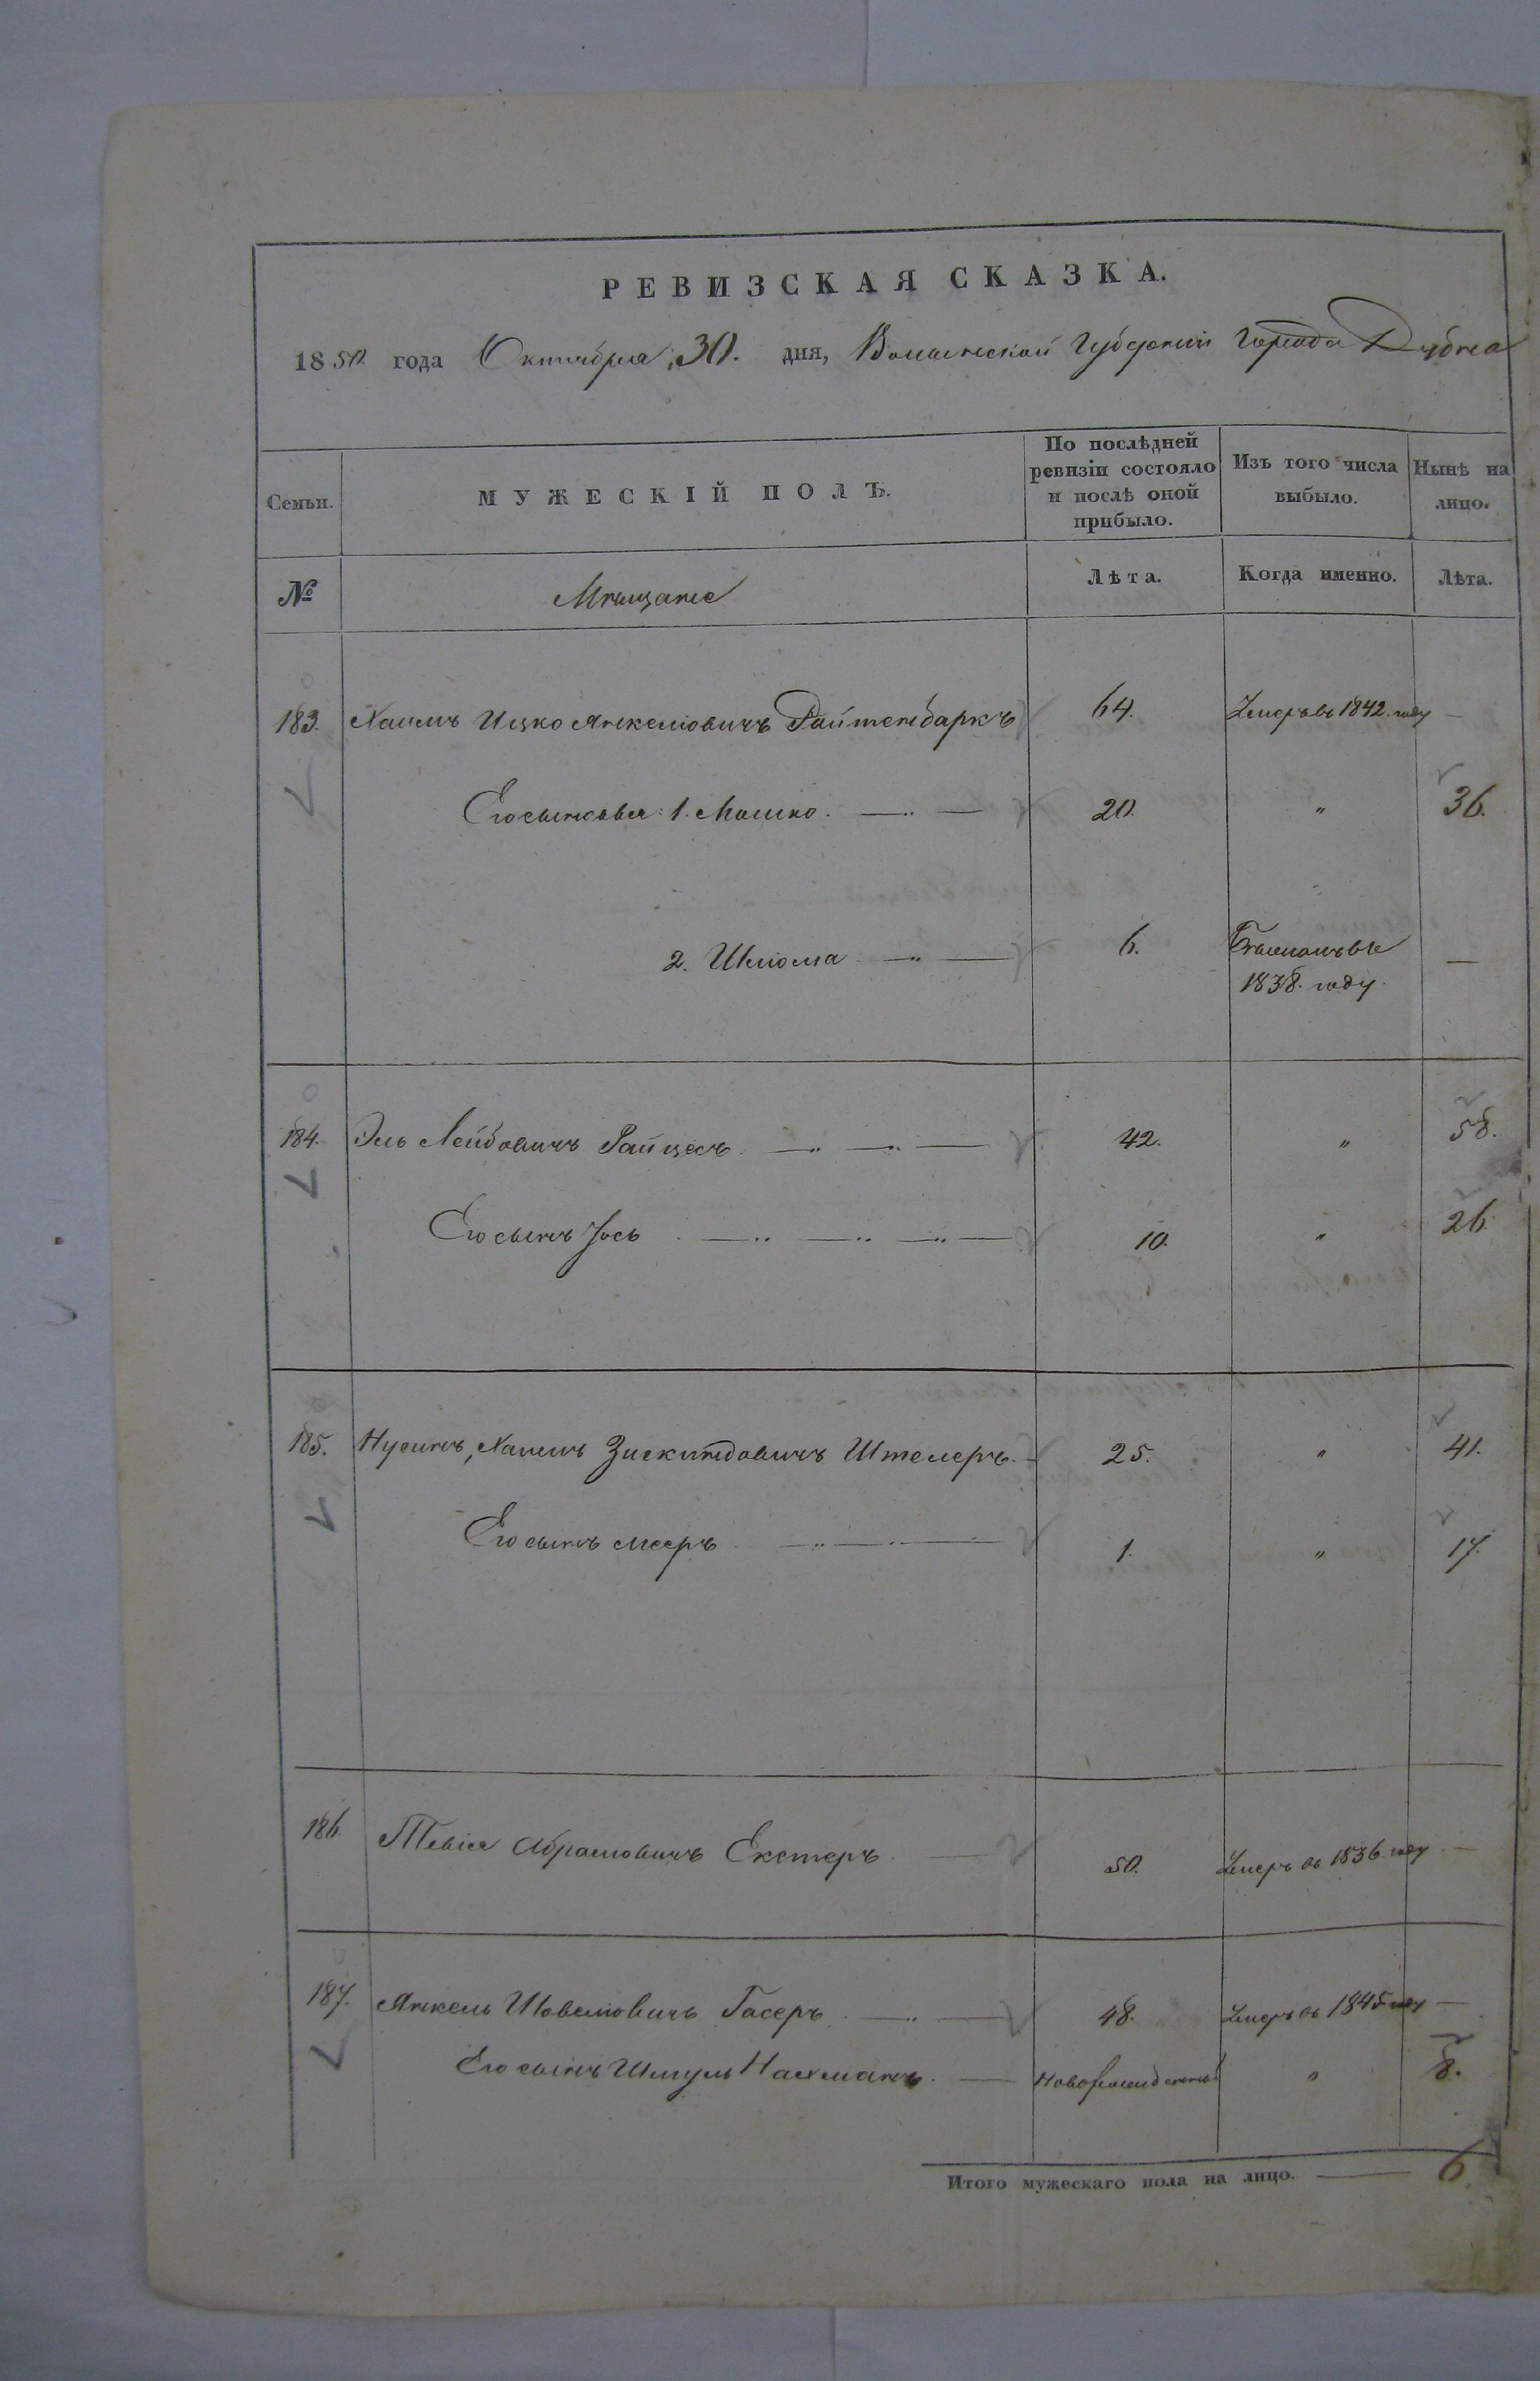 РЕВИЗСКАЯ СКАЗКА.
1850 года Октября 30. дня, Волынской Губерніи Города Дубна
Семьи. МУЖЕСКІЙ ПОЛЪ. По послѣдней ревизіи состояло и послѣ оной прибыло. Изъ того числа выбыло. Нынѣ на лицо.
№ Мѣщане Лѣта. Когда именно. Лѣта.
183. Хаимъ Ицко Янкелювичъ Райтенбаркъ 64. Умеръ въ 1842. году —
Его сыновья: 1. Мошко. — „ — 20. „ 36.
2. Шлюма — „ — 6. Бѣжалъ въ —
1838. году
184. Эль Лейбовичъ Райцесъ. — „ — „ — 42. „ 58.
Его сынъ Іось — „ — „ — „ — 10. „ 26.
185. Нусинъ, Хаимъ Зискиндовичъ Штелеръ. — 25. „ 41.
Его сынъ Мееръ — „ — „ — 1. „ 17.
186. Тевіе Абрамовичъ Екстеръ — 50. Умеръ въ 1836. году —
187. Янкель Шовелювичъ Гасеръ — „ — 48. Умеръ въ 1845 году —
Его сынъ Шмуль Нахманъ. — Новорожденный „ 8.
Итого мужескаго пола на лицо. — 6.